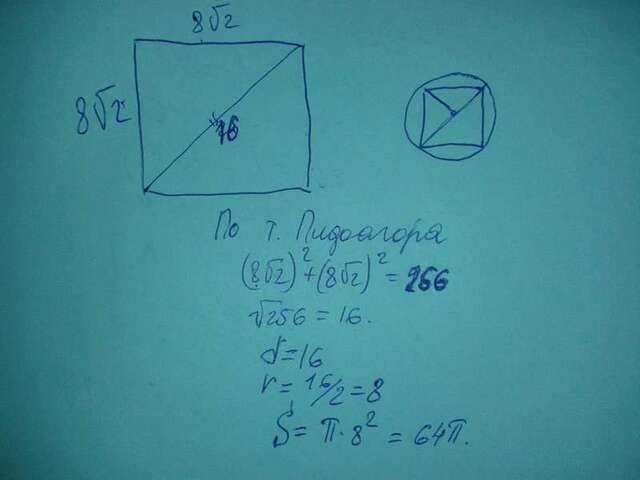 8√2
8√2
16
По т. Пидоагора
(8√2)² + (8√2)² = 256
√256 = 16.
d=16
r= 16/2=8
S= π·8² = 64π.